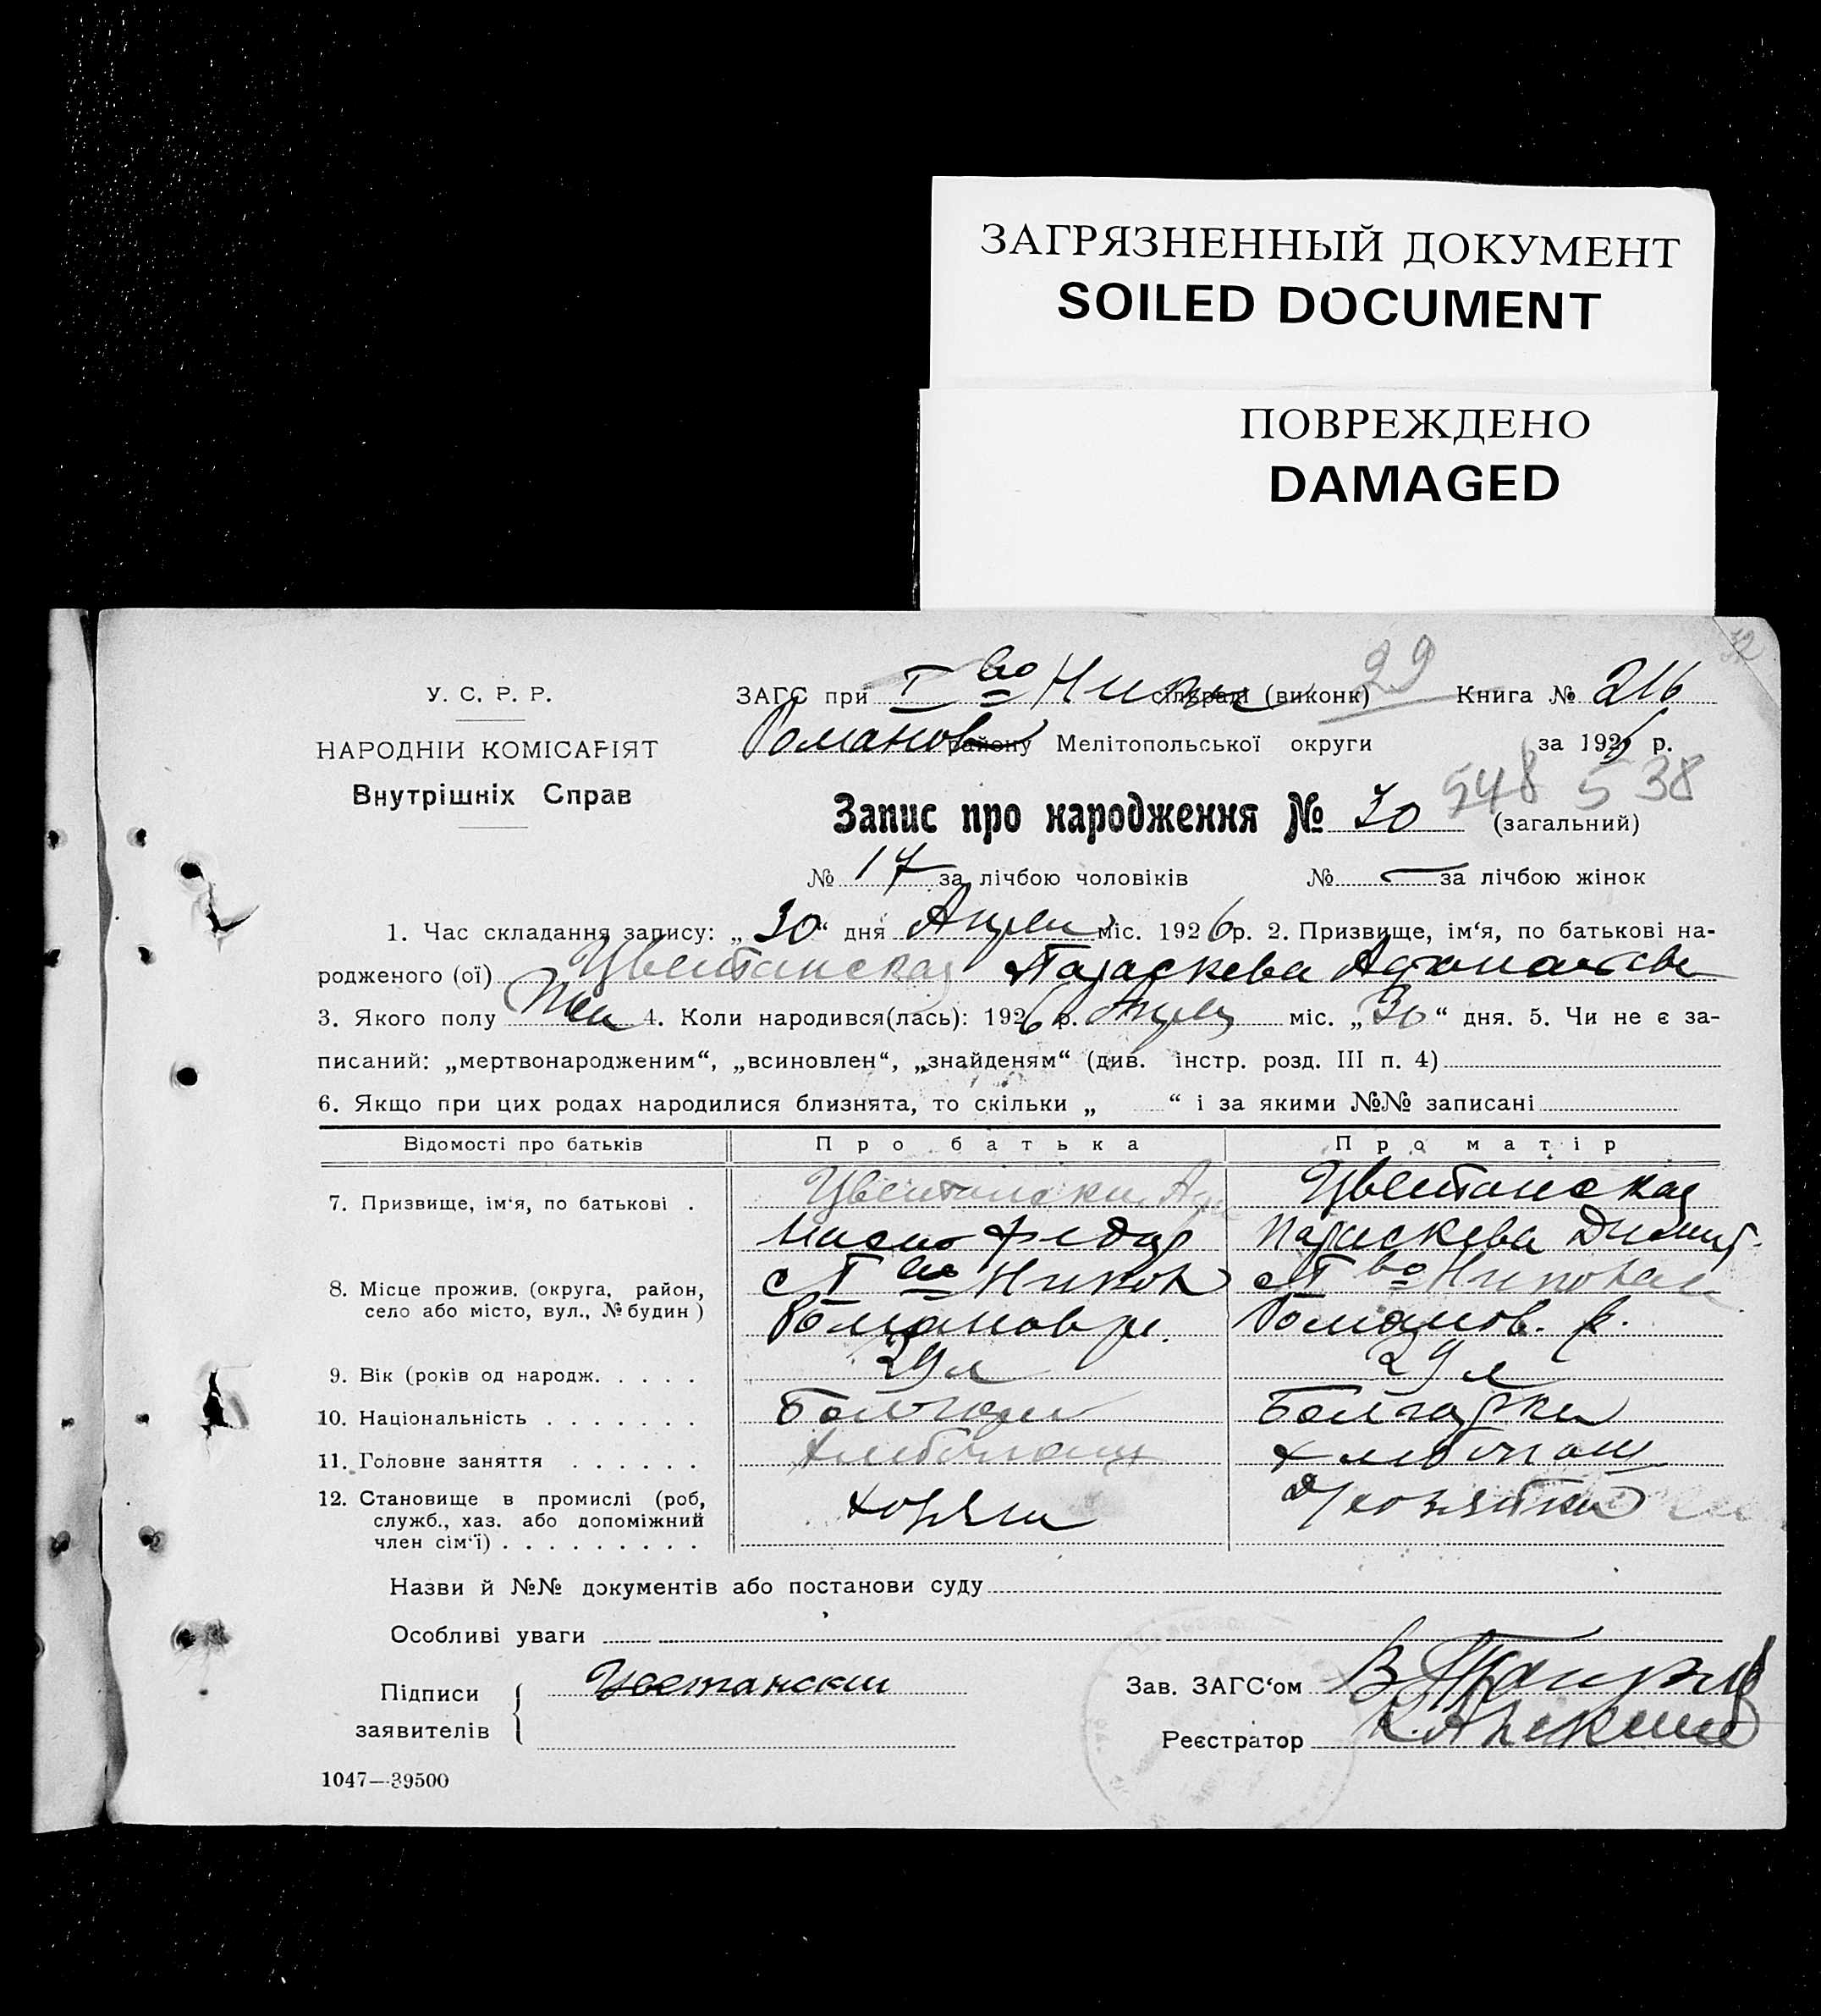 ЗАГРЯЗНЕННЫЙ ДОКУМЕНТ
SOILED DOCUMENT
ПОВРЕЖДЕНО
DAMAGED
32
У. С. Р. Р.
НАРОДНІЙ КОМІСАРІЯТ
Внутрішніх Справ
ЗАГС при I во Ник сільраді (виконк) 29 Книга № 216
Романов району Мелітопольської округи за 1926 р.
548 538
Запис про народження № 30 (загальний)
№ 17 за лічбою чоловіків № — за лічбою жінок
1. Час складання запису: „30“ дня міс. 1926 р. 2. Призвище, ім‘я, по батькові на-
родженого (ої) Цветанская Параскева
3. Якого полу Жен 4. Коли народився(лась): 1926 р. міс. „30“ дня. 5. Чи не є за-
писаний: „мертвонародженим“, „всиновлен“, „знайденям“ (див. інстр. розд. III п. 4)
6. Якщо при цих родах народилися близнята, то скільки „ “ і за якими №№ записані
Відомості про батьків
Про батька
Про матір
7. Призвище, ім‘я, по батькові .
Цветански
Федор
Цветанская
Параскева Димит
8. Місце прожив. (округа, район,
село або місто, вул., № будин )
с I во Никол
Романов р.
с I во Николае
Романов. р.
9. Вік (років од народж. . . . .
29 л
29 л
10. Національність . . . . . . .
Болгарин
Болгарка
11. Головне заняття . . . . . .
12. Становище в промислі (роб,
служб., хаз. або допоміжний
член сім‘ї) . . . . . . . . .
Назви й №№ документів або постанови суду
Особливі уваги
Підписи
заявителів
Цветански
Зав. ЗАГС‘ом
Реєстратор
1047—39500